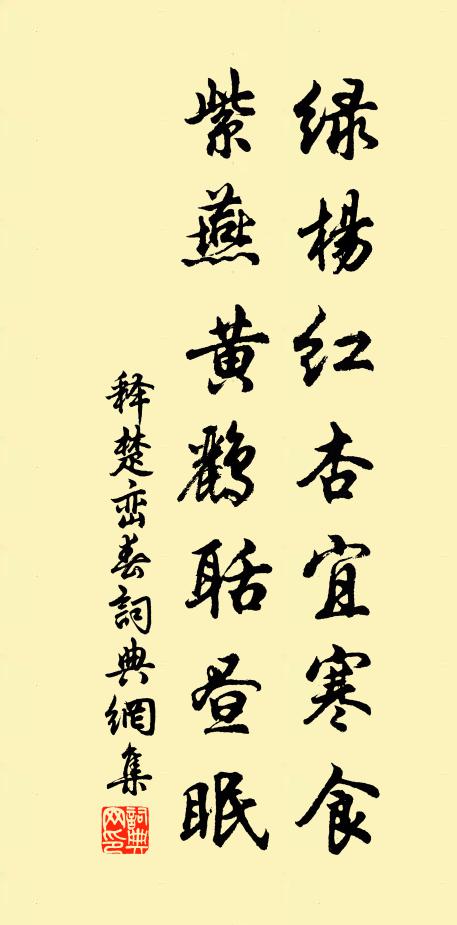 绿杨红杏宜寒食
紫燕黄鹂聒昼眠
释楚峦春詞典網集
詞典网印